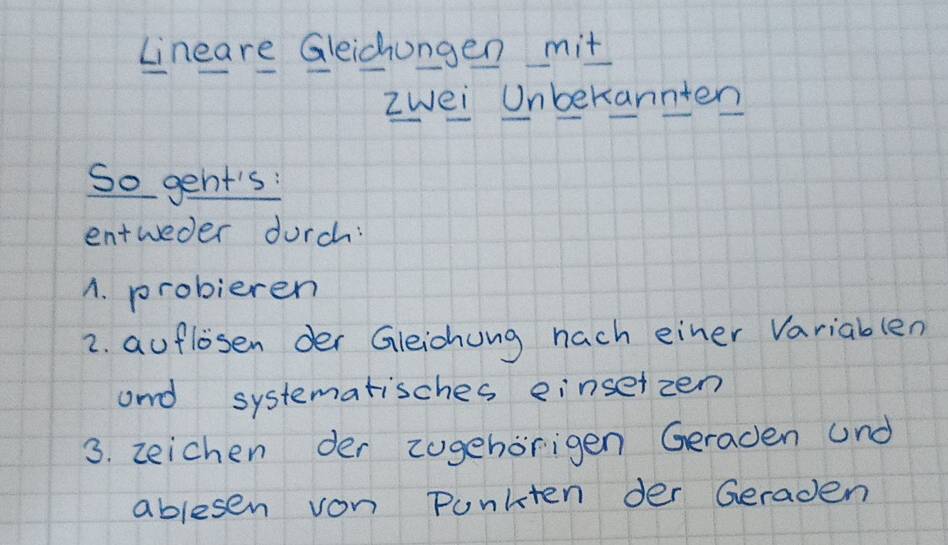 Lineare Gleichungen mit
zwei Unbekannten
So geht's:
entweder durch:
1. probieren
2. auflösen der Gleichung nach einer Variablen
und systematisches einsetzen
3. zeichen der zugehörigen Geraden und
ablesen von Punkten der Geraden